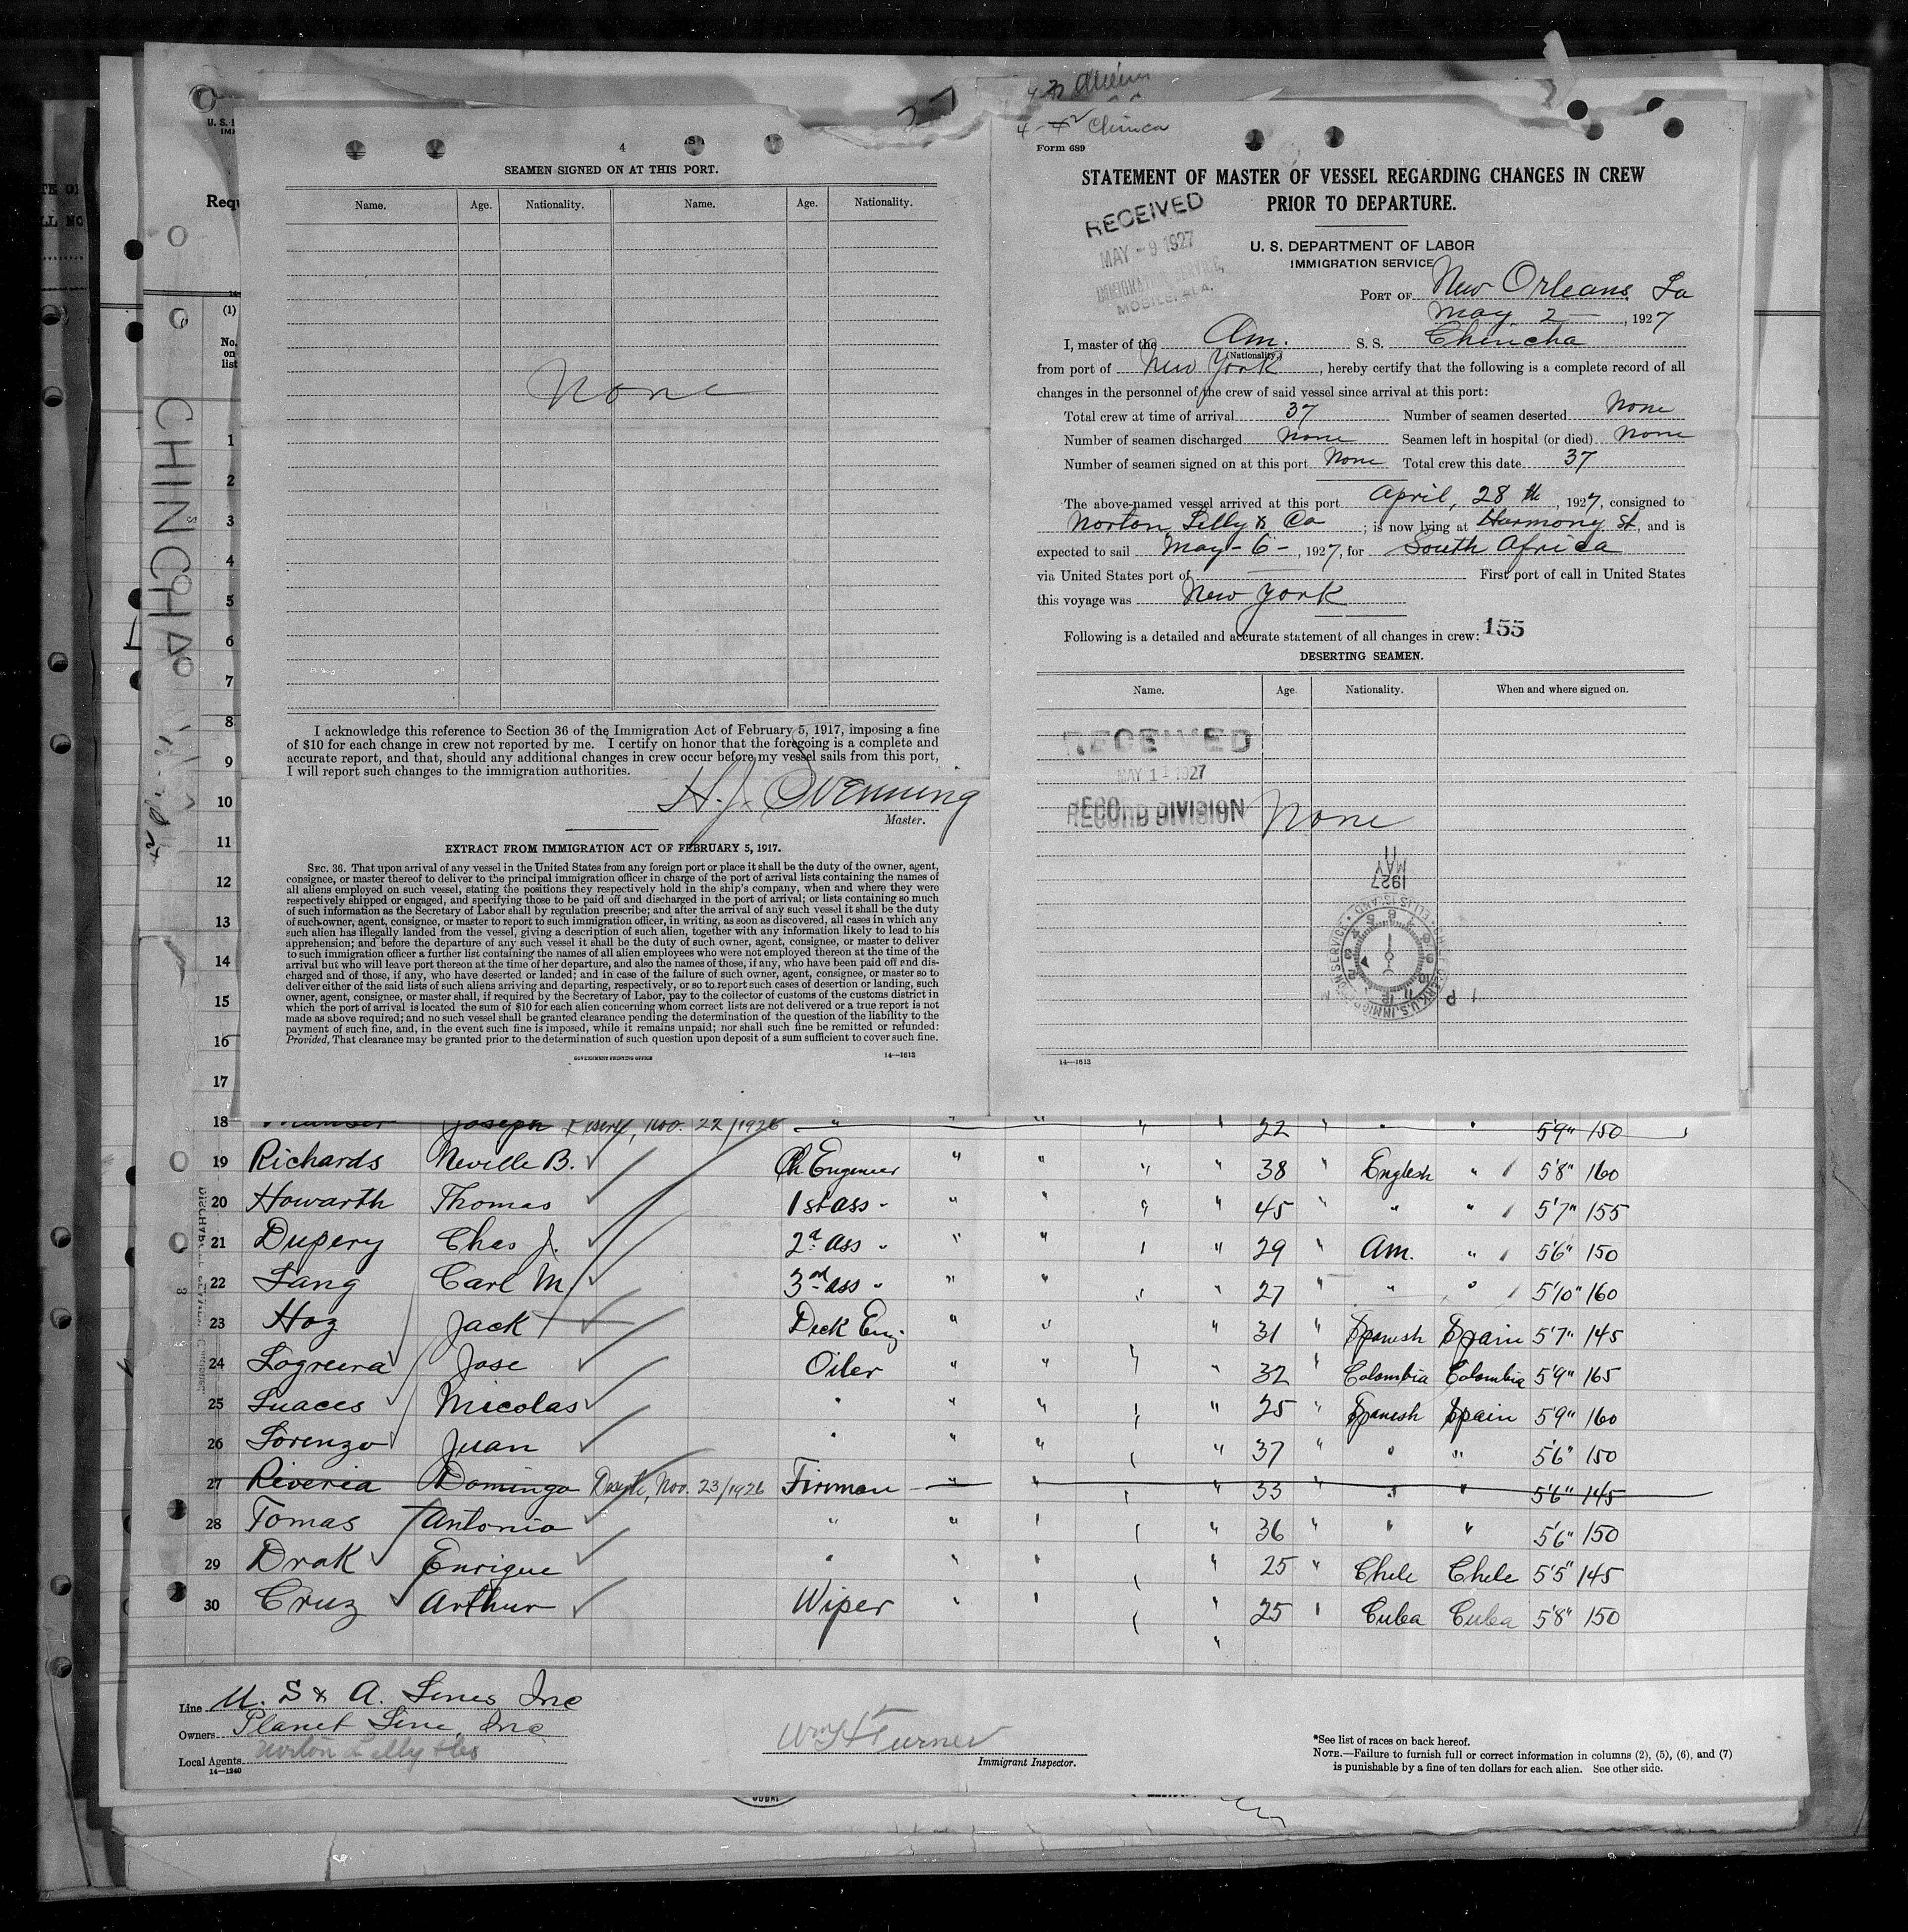 4
SEAMEN SIGNED ON AT THIS PORT.
Name. Age. Nationality. Name. Age. Nationality.
None
I acknowledge this reference to Section 36 of the Immigration Act of February 5, 1917, imposing a fine
of $10 for each change in crew not reported by me. I certify on honor that the foregoing is a complete and
accurate report, and that, should any additional changes in crew occur before my vessel sails from this port,
I will report such changes to the immigration authorities.
H. J. Ovenning
Master.
EXTRACT FROM IMMIGRATION ACT OF FEBRUARY 5, 1917.
SEC. 36. That upon arrival of any vessel in the United States from any foreign port or place it shall be the duty of the owner, agent,
consignee, or master thereof to deliver to the principal immigration officer in charge of the port of arrival lists containing the names of
all aliens employed on such vessel, stating the positions they respectively hold in the ship's company, when and where they were
respectively shipped or engaged, and specifying those to be paid off and discharged in the port of arrival; or lists containing so much
of such information as the Secretary of Labor shall by regulation prescribe; and after the arrival of any such vessel it shall be the duty
of such owner, agent, consignee, or master to report to such immigration officer, in writing, as soon as discovered, all cases in which any
such alien has illegally landed from the vessel, giving a description of such alien, together with any information likely to lead to his
apprehension; and before the departure of any such vessel it shall be the duty of such owner, agent, consignee, or master to deliver
to such immigration officer a further list containing the names of all alien employees who were not employed thereon at the time of the
arrival but who will leave port thereon at the time of her departure, and also the names of those, if any, who have been paid off and dis-
charged and of those, if any, who have deserted or landed; and in case of the failure of such owner, agent, consignee, or master so to
deliver either of the said lists of such aliens arriving and departing, respectively, or so to report such cases of desertion or landing, such
owner, agent, consignee, or master shall, if required by the Secretary of Labor, pay to the collector of customs of the customs district in
which the port of arrival is located the sum of $10 for each alien concerning whom correct lists are not delivered or a true report is not
made as above required; and no such vessel shall be granted clearance pending the determination of the question of the liability to the
payment of such fine, and, in the event such fine is imposed, while it remains unpaid; nor shall such fine be remitted or refunded:
Provided, That clearance may be granted prior to the determination of such question upon deposit of a sum sufficient to cover such fine.
GOVERNMENT PRINTING OFFICE 14—1613
Form 689
STATEMENT OF MASTER OF VESSEL REGARDING CHANGES IN CREW
PRIOR TO DEPARTURE.
RECEIVED
MAY - 9 1927
IMMIGRATION SERVICE,
MOBILE, ALA.
U. S. DEPARTMENT OF LABOR
IMMIGRATION SERVICE
PORT OF New Orleans, La
May 2 —, 1927
I, master of the Am. S. S. Chincha
(Nationality.)
from port of New York, hereby certify that the following is a complete record of all
changes in the personnel of the crew of said vessel since arrival at this port:
Total crew at time of arrival 37 Number of seamen deserted None
Number of seamen discharged None Seamen left in hospital (or died) None
Number of seamen signed on at this port None Total crew this date 37
The above-named vessel arrived at this port April, 28th, 1927, consigned to
Norton, Lilly & Co; is now lying at Harmony St, and is
expected to sail May - 6 -, 1927, for South Africa
via United States port of — First port of call in United States
this voyage was New York
Following is a detailed and accurate statement of all changes in crew: 155
DESERTING SEAMEN.
Name. Age. Nationality. When and where signed on.
RECEIVED
MAY 11 1927
RECORD DIVISION
None
MAY 11
1927
14—1613
CHINCHA
(1)
No. on list
1
2
3
4
5
6
7
8
9
10
11
12
13
14
15
16
17
18 Joseph Desert, Nov. 22/1926 " " " " " 22 " " " 5'9" 150
19 Richards Neville B. Ch Engineer " " " " 38 " English " 5'8" 160
20 Howarth Thomas 1st ass " " " " " 45 " " " 5'7" 155
21 Dupery Chas J. 2d ass " " " " " 29 " Am. " 5'6" 150
22 Lang Carl M. 3rd ass " " " " " 27 " " " 5'10" 160
23 Hoz Jack Deck Eng. " " " 31 " Spanish Spain 5'7" 145
24 Logreera Jose Oiler " " " " 32 " Colombia Colombia 5'9" 165
25 Luaces Nicolas " " " " " 25 " Spanish Spain 5'9" 160
26 Lorenzo Juan " " " " " 37 " " " 5'6" 150
27 Riveria Domingo Deserted, Nov. 23/1926 Firman " " " " 33 " " " 5'6" 145
28 Tomas Antonio " " " " " 36 " " " 5'6" 150
29 Drak Enrique " " " " " 25 " Chele Chele 5'5" 145
30 Cruz Arthur Wiper " " " " 25 " Cuba Cuba 5'8" 150
Line U. S & A. Lines Inc
Owners Planet Line, Inc
Local Agents Norton Lilly & Co
14—1240
Wm H Turner
Immigrant Inspector.
*See list of races on back hereof.
NOTE.—Failure to furnish full or correct information in columns (2), (5), (6), and (7)
is punishable by a fine of ten dollars for each alien. See other side.